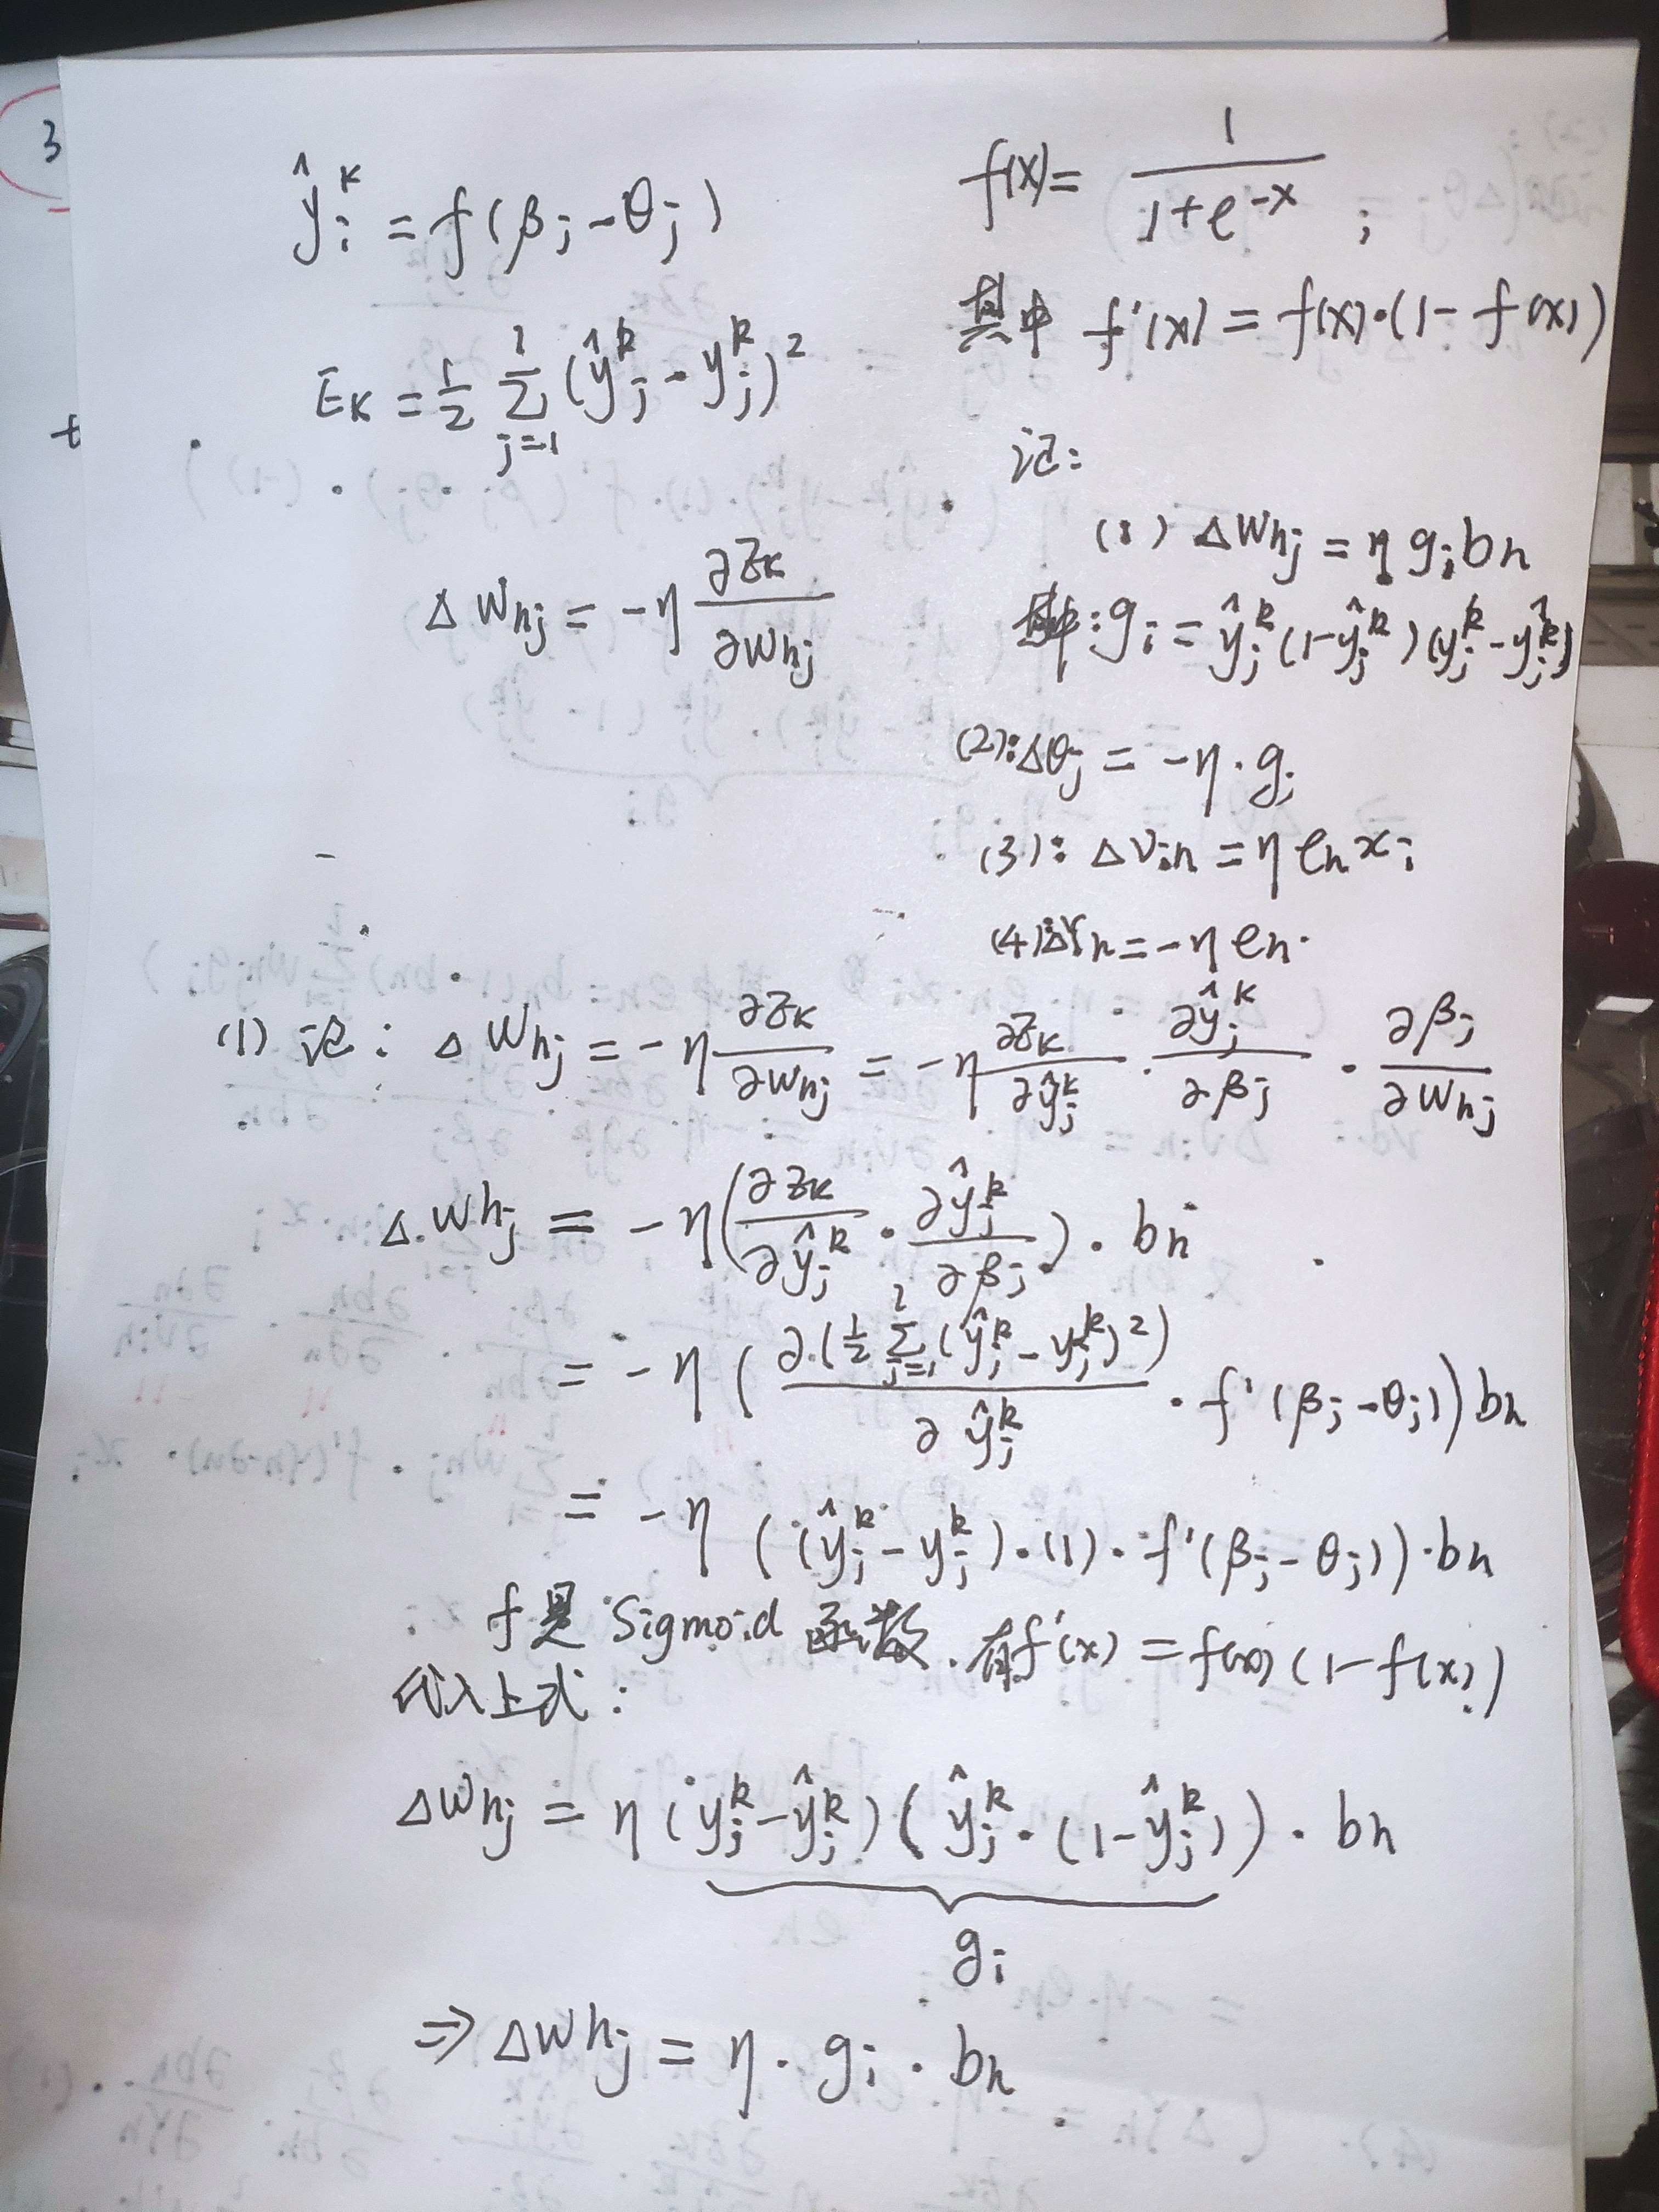 3
t
ŷ_j^k = f(β_j - θ_j)
E_k = 1/2 Σ_{j=1}^{l} (ŷ_j^k - y_j^k)^2
Δw_hj = -η ∂E_k/∂w_hj
f(x) = 1/(1+e^{-x}) ;
其中 f'(x) = f(x)·(1-f(x))
记:
(1) Δw_hj = η g_j b_h
其中: g_j = ŷ_j^k (1-ŷ_j^k)(y_j^k - ŷ_j^k)
(2): Δθ_j = -η·g_j
(3): Δv_ih = η e_h x_i
(4) Δγ_h = -η e_h.
(1) 记: Δw_hj = -η ∂E_k/∂w_hj = -η ∂E_k/∂ŷ_j^k · ∂ŷ_j^k/∂β_j · ∂β_j/∂w_hj
Δw_hj = -η(∂E_k/∂ŷ_j^k · ∂ŷ_j^k/∂β_j) · b_h
= -η ( ∂(1/2 Σ_{j=1}^{l} (ŷ_j^k - y_j^k)^2)/∂ŷ_j^k · f'(β_j - θ_j)) b_h
= -η ((ŷ_j^k - y_j^k)·(1)·f'(β_j - θ_j))·b_h
f是 Sigmoid 函数. 有f'(x) = f(x)(1-f(x))
代入上式:
Δw_hj = η (y_j^k - ŷ_j^k)(ŷ_j^k·(1-ŷ_j^k))·b_h
g_j
⇒ Δw_hj = η·g_j·b_h